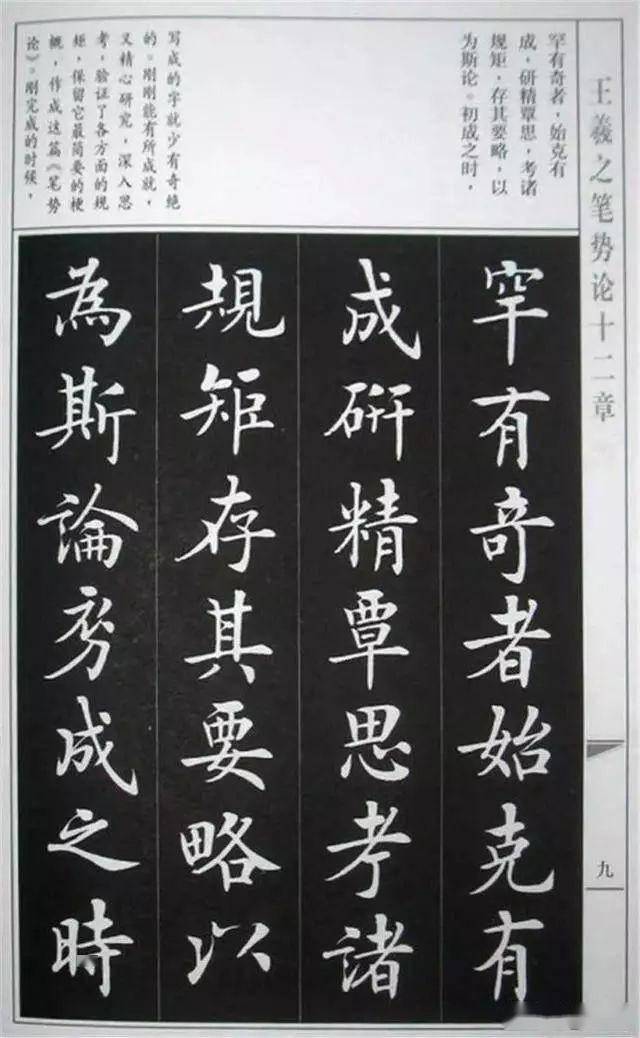 王羲之笔势论十二章
九
罕有奇者，始克有
成，研精覃思，考诸
规矩，存其要略，以
为斯论。初成之时，
写成的字就少有奇绝
的。刚刚能有所成就，
又精心研究，深入思
考，验证了各方面的规
矩，保留它最简要的梗
概，作成这篇《笔势
论》。刚完成的时候，
罕有奇者始克有
成研精覃思考諸
規矩存其要略以
為斯論初成之時